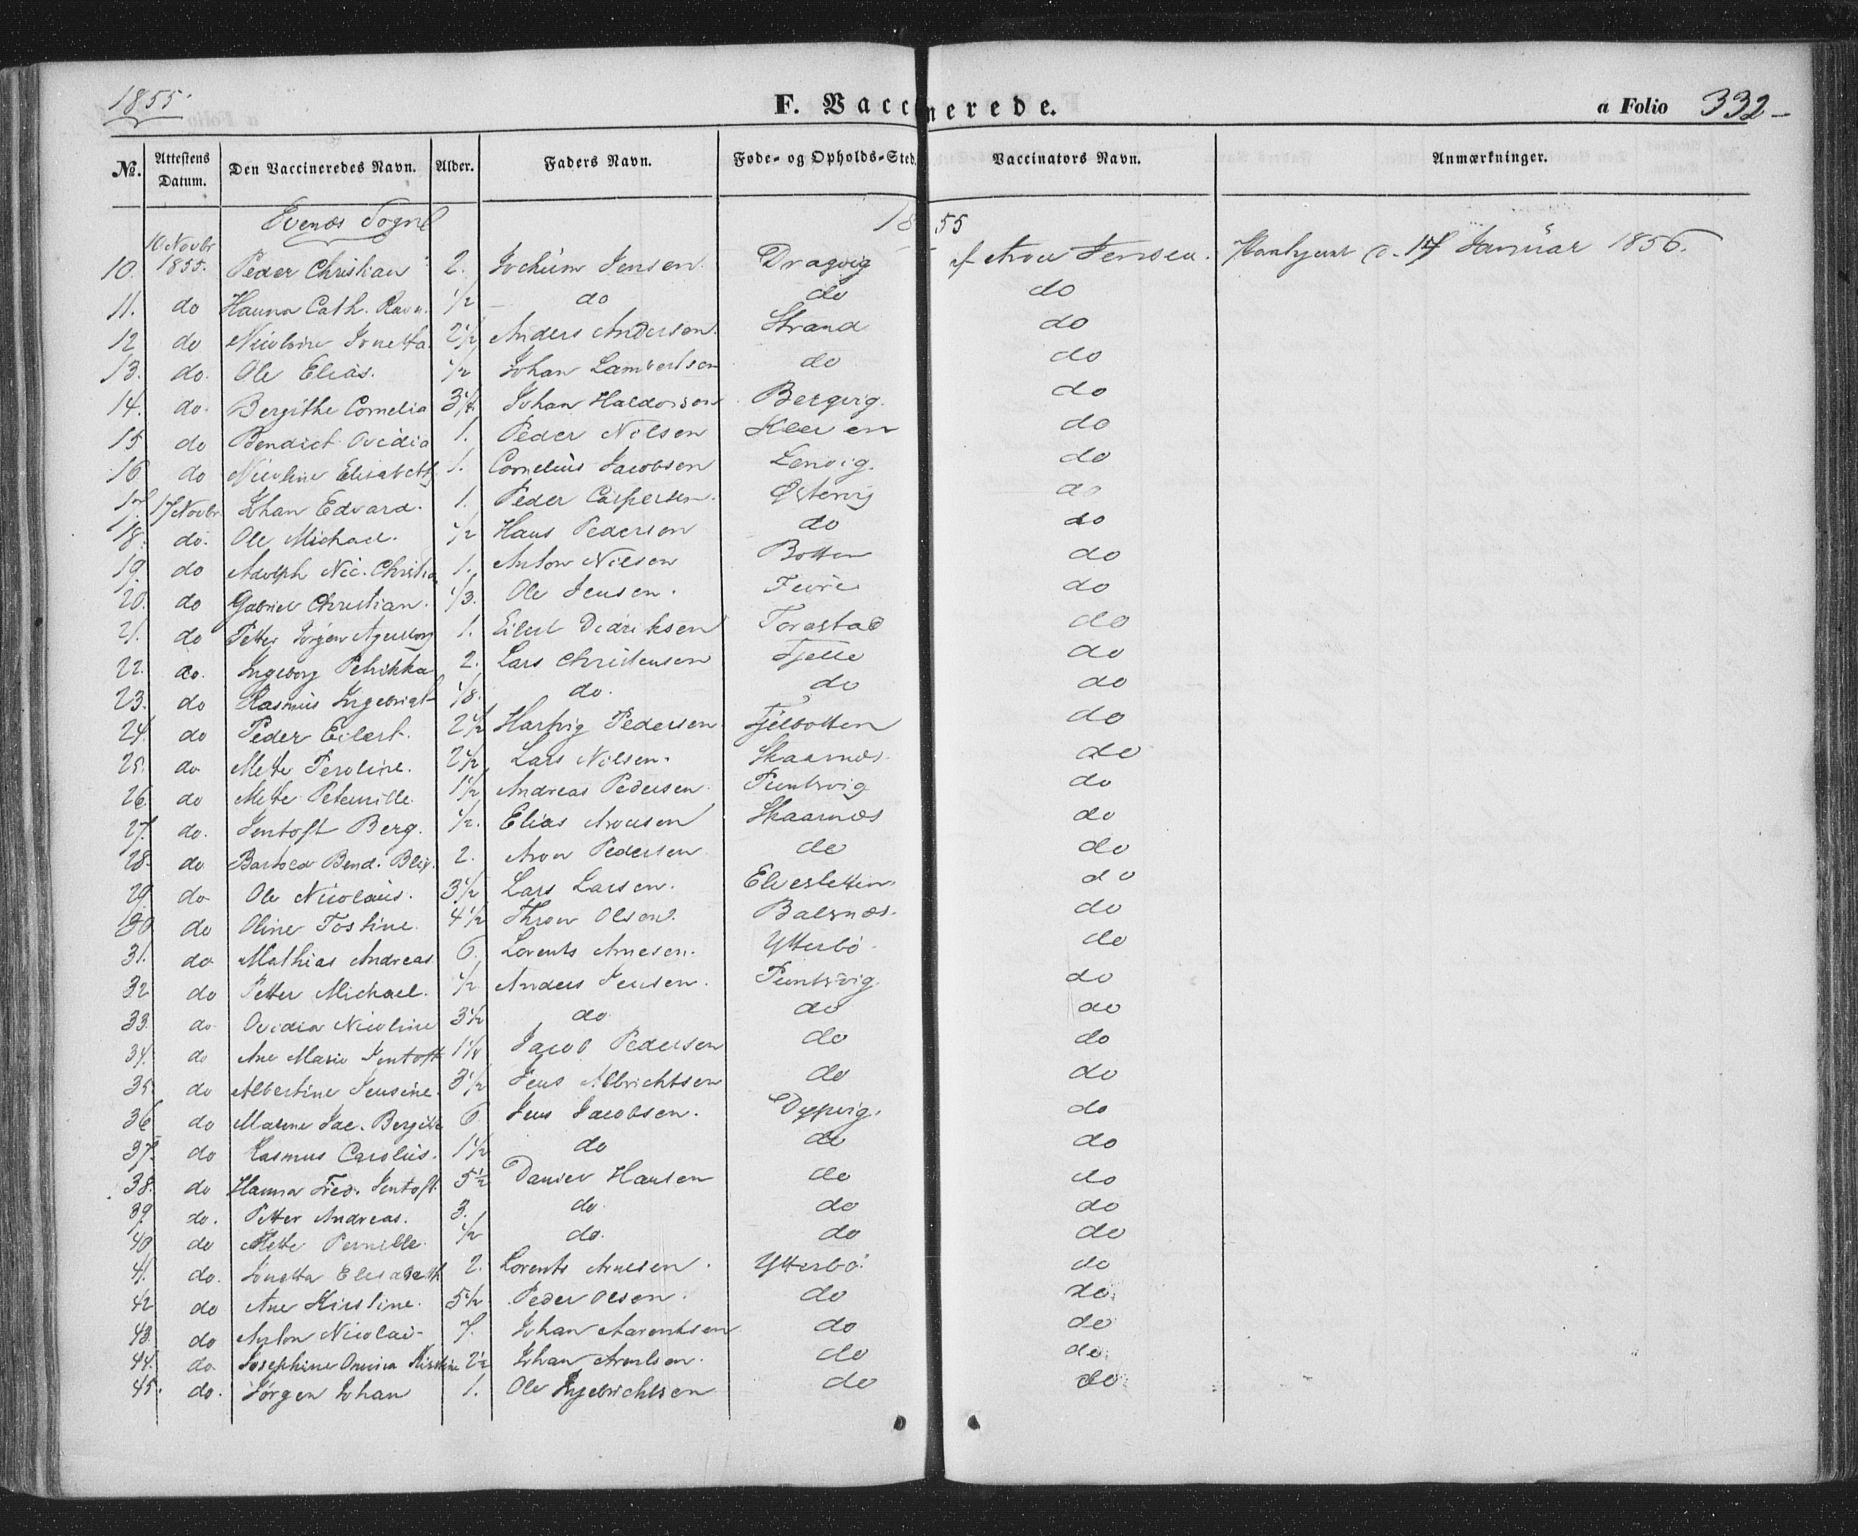 1855. F. Vaccinerede. a Folio 332
No. Attestens Datum. Den Vaccineredes Navn. Alder. Faders Navn. Føde- og Opholds-Sted. Vaccinators Navn. Anmærkninger.
Evenæs Sogn 1855
10. 10 Novbr 1855. Peder Christian 2. Jochum Jensen. Dragvig af Aron Jensen. d. 14 Januar 1856.
11. do Hanna Cath. Ravn. 1/2 do do do
12 do Nicoline Jonetta. 2 1/2 Anders Andersen. Strand do
13. do. Ole Elias. 1/2 Johan Lambertsen do do
14. do. Bergithe Cornelia 3 1/2 Johan Haldorsen Bergvig. do
15 do Bendict Ovidia 1. Peder Nilsen do
16. do Nicoline Elisabeth 1. Cornelius Jacobsen Lenvig. do
17. 17 Novbr Johan Edvard. 1. Peder Caspersen. Østervig do
18. do. Ole Michael. 1/2 Hans Pedersen do do
19 do Adolph Nic. Christian 1. Anton Nilsen Botten do
20. do Gabriel Christian. 1/3. Ole Jensen. do
21. do Petter Jørgen 1. Eilert Didriksen Forastad do
22. do. Ingeborg Petrikka 2. Lars Christensen Fjelle do
23. do Rasmus Ingebrigt 1/8. do. do do
24. do Peder Eilert. 2 1/2 Hartvig Pedersen. Fjelbotten do
25. do Mette Peroline. 2 1/2 Lars Nilsen. Skaarnæs. do
26. do Mette Peternille. 1 1/2 Andreas Pedersen. Puntsvig do
27. do. Jentoft Berg. 1/2. Elias Aronsen Skaarnæs do
28. do Bartold Bend. Blix. 2. Aron Pedersen do do
29. do Ole Nicolaus. 3 1/2 Lars Larsen. Elvesletten. do
30 do Oline Tostine. 4 1/2 Thron Olsen. Balsnæs. do
31. do Mathias Andreas 6. Lorents Arnesen. Ytterbö. do
32 do Petter Michael. 1/2 Anders Jensen. Puntsvig. do
33. do Ovidia Nicoline 3 1/2 do do do
34. do Ane Marie Jentoft 1 1/4 Jacob Pedersen do do
35. do Albertine Jensine. 3 1/2 Jens Albrichtsen do do
36 do Marine Jac. Bergitte 6 Jens Jacobsen. Dypvig. do
37. do Rasmus Carolus. 1 1/2 do do do
38. do Hanna Fred. Jentoft. 5 1/2 Daniel Hansen do do
39. do. Petter Andreas. 3. do. do do
40 do Mette Pernille. 1/2 do. do do
41. do. Jonetta Elisabeth 2. Lorents Arnesen. Ytterbö. do
42 do Ane Kirstine. 5 1/2 Peder Olsen. do do.
43. do Anton Nicolai 7. Johan Aarentsen do do
44. do Josephine Kirstine 2 1/2 Johan do do.
45. do. Jørgen Johan 1. Ole Ingebrichtsen do do